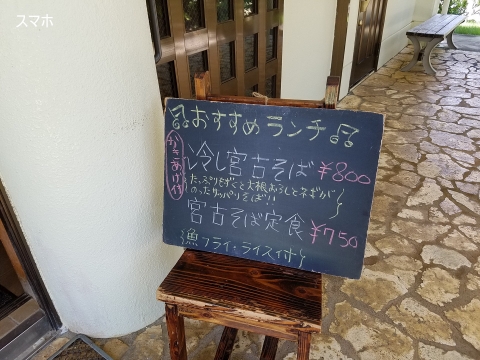 スマホ
♫おすすめランチ♫
かきあげ付
冷し宮古そば ¥800
たっぷりもずくと大根おろしとネギがバ
のったサッパリそば!!
宮古そば定食 ¥750
魚フライ・ライス付